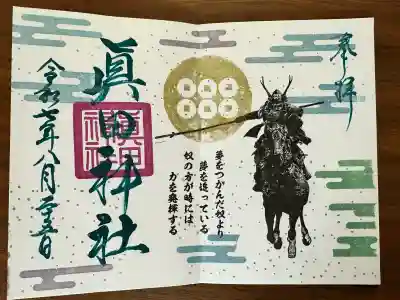 奉拝
夢をつかんだ奴より
夢を追っている
奴の方が時には
力を発揮する
眞田神社
眞田神社
令和七年八月二十五日